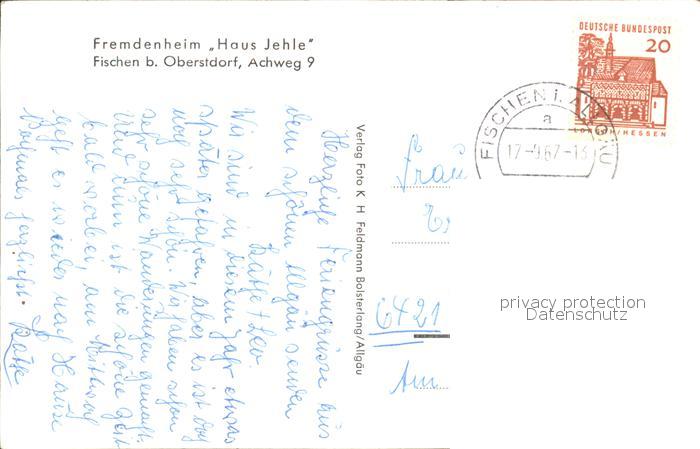 Fremdenheim „Haus Jehle"
Fischen b. Oberstdorf, Achweg 9
DEUTSCHE BUNDESPOST
20
LORSCH/HESSEN
FISCHEN i. ALLGÄU
a
17-9.67-13
Herzliche Feriengrüße aus
dem schönen Allgäu senden
Käthe + Leo.
Wir sind in diesem Jahr etwas
später gefahren, aber es ist doch
noch sehr schön. Wir haben schon
sehr schöne Wanderungen gemacht.
dann ist die schöne Zeit
bald vorbei, am Mittwoch
geht es wieder nach Hause
herzlichst Käthe
Verlag Foto K H Feldmann Bolsterlang/Allgäu
Frau
6421
Am
privacy protection
Datenschutz